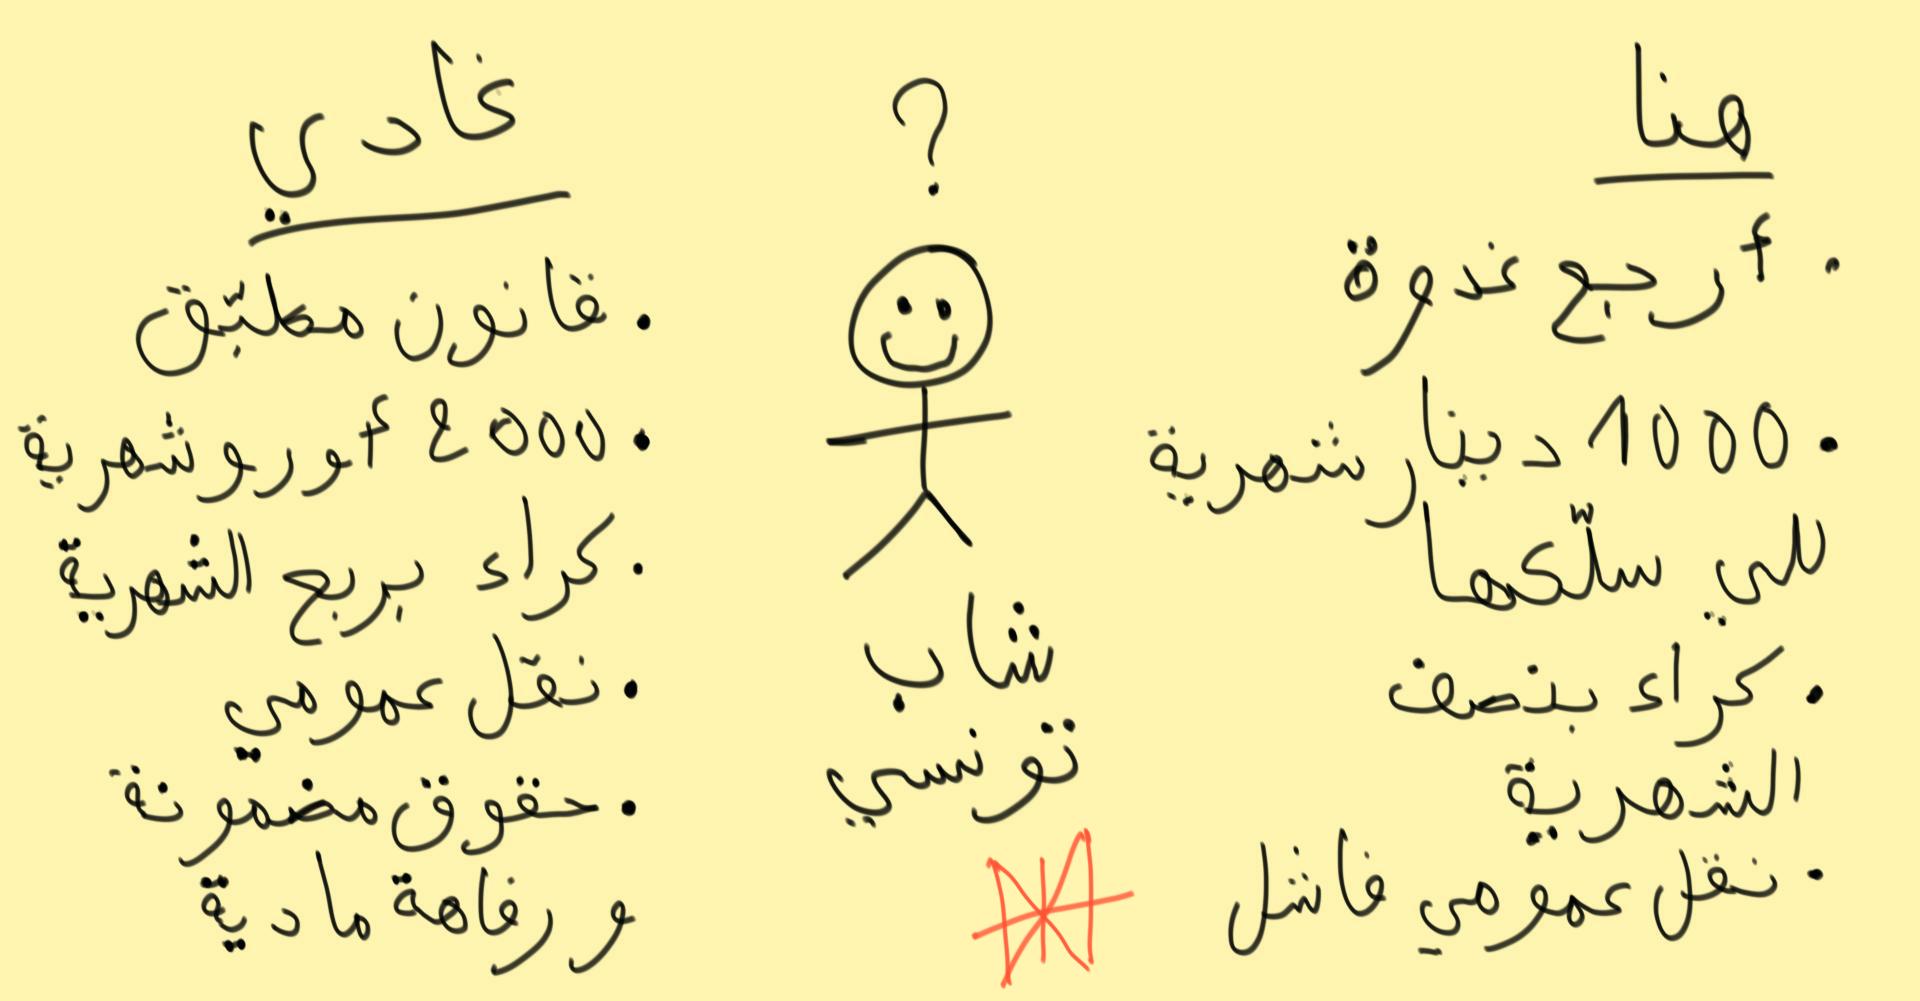 هنا
. أرجع غدوة
. 1000 دينار شهرية
للي سلّكها
. كراء بنصف
الشهرية
. نقل عمومي فاشل
?
شاب
تونسي
غادي
. قانون مطبّق
. 2000 أورو شهرية
. كراء بربع الشهرية
. نقل عمومي
. حقوق مضمونة
ورفاهة مادية